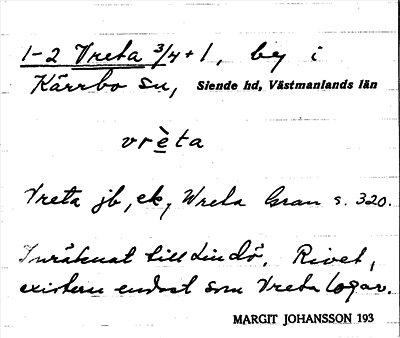 1-2 Vreta 3/4+1, by i
Kärrbo sn, Siende hd, Västmanlands län
vrèta
Vreta jb, ek, Wreta Gran s. 320.
Inräknat till Lindö. Rivet,
existerar endast som Vreta logar.
MARGIT JOHANSSON 193